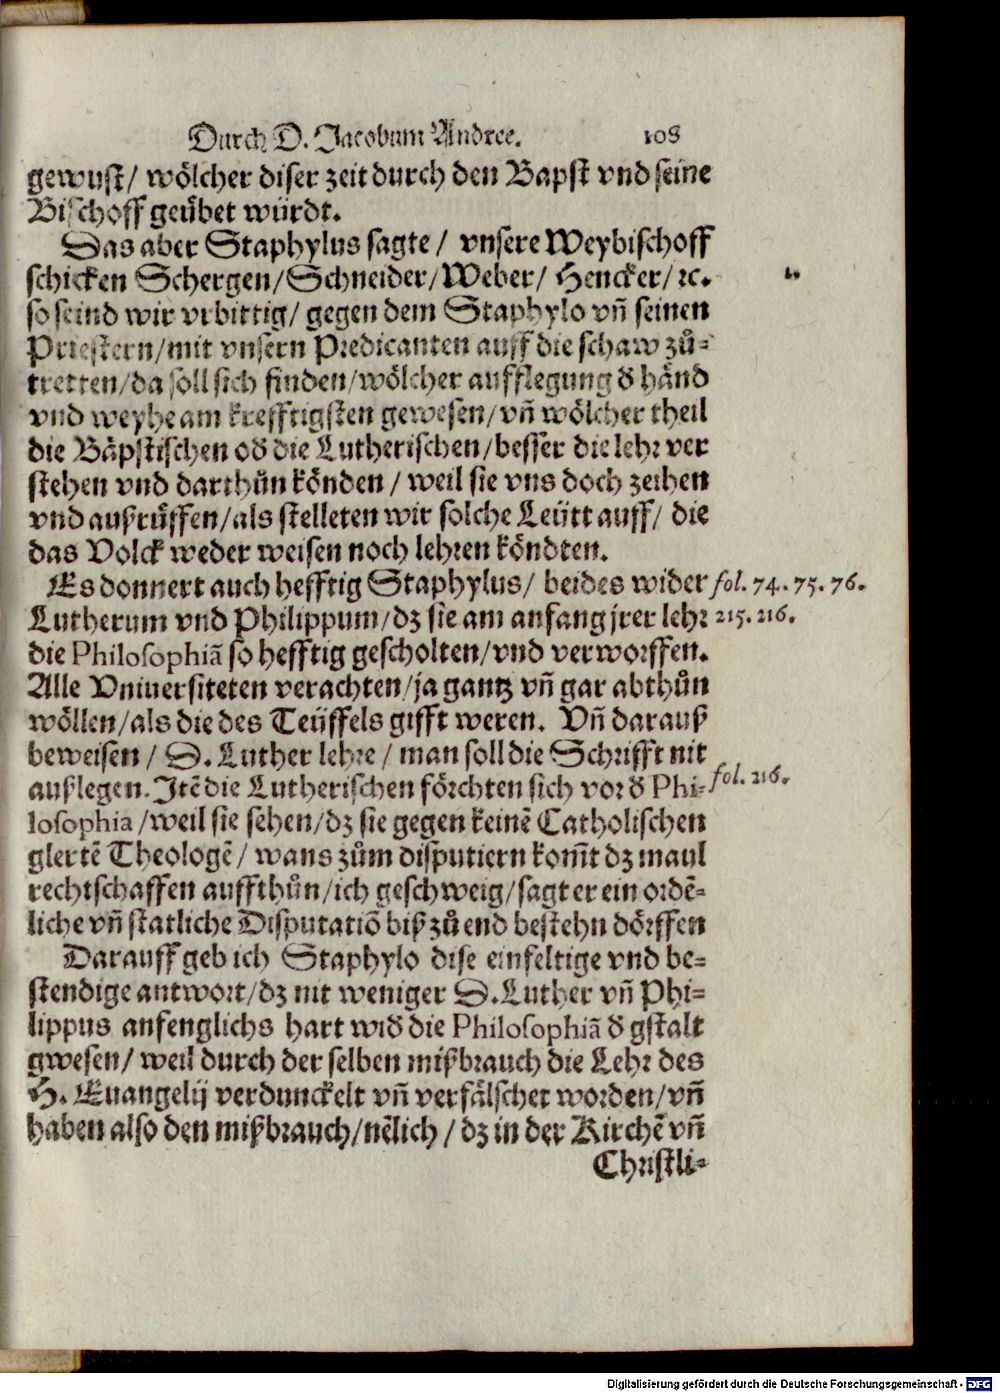 Durch D. Jacobum Andree. 108
gewust/ wölcher diser zeit durch den Bapst vnd seine
Bischoff geübet würdt.
Das aber Staphylus sagte/ vnsere Weybischoff
schicken Schergen/Schneider/Weber/ Hencker/ꝛc.
so seind wir vrbittig/ gegen dem Staphylo vñ seinen
Priestern/mit vnsern Predicanten auff die schaw zů-
tretten/da soll sich finden/wölcher aufflegung ď händ
vnd weyhe am krefftigsten gewesen/vñ wölcher theil
die Bäpstischen oď die Lutherischen/besser die lehr ver
stehen vnd darthůn könden/ weil sie vns doch zeihen
vnd außrůffen/als stelleten wir solche Leütt auff/ die
das Volck weder weisen noch lehren köndten.
Es donnert auch hefftig Staphylus/ beides wider fol. 74. 75. 76.
Lutherum vnd Philippum/dz sie am anfang jrer lehr 215. 216.
die Philosophiã so hefftig gescholten/vnd verworffen.
Alle Vniuersiteten verachten/ja gantz vñ gar abthůn
wöllen/als die des Teüffels gifft weren. Vñ darauß
beweisen/ D. Luther lehre/ man soll die Schrifft nit
außlegen. Itẽ die Lutherischen förchten sich vor ď Phi- fol. 216.
losophia/weil sie sehen/dz sie gegen keinẽ Catholischen
glertẽ Theologẽ/ wans zům disputiern kom̃t dz maul
rechtschaffen auffthůn/ich geschweig/sagt er ein ordẽ-
liche vñ statliche Disputatiõ biß zů end bestehn dörffen
Darauff geb ich Staphylo dise einfeltige vnd be-
stendige antwort/dz nit weniger D. Luther vñ Phi-
lippus anfenglichs hart wiď die Philosophiã ď gstalt
gwesen/ weil durch der selben mißbrauch die Lehr des
H. Euangelij verdunckelt vñ verfälschet worden/vñ
haben also den mißbrauch/nẽlich/ dz in der Kirchẽ vñ
Christli-
Digitalisierung gefördert durch die Deutsche Forschungsgemeinschaft - DFG